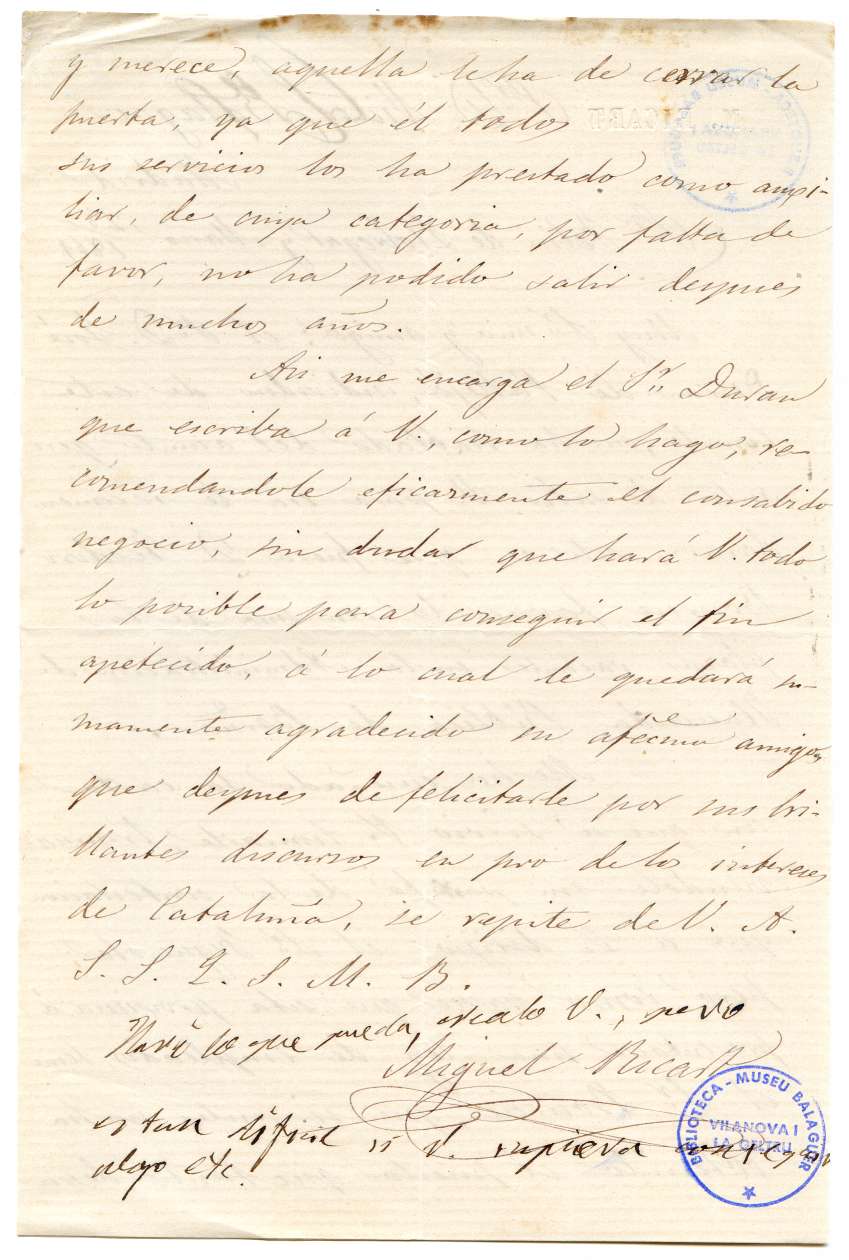 y merece, aquella le ha de cerrar la
puerta, ya que él todos
sus servicios los ha prestado como auxi-
liar, de cuya categoria, por falta de
favor, no ha podido salir despues
de muchos años.
Asi me encarga el Sr. Duran
que escriba á V., como lo hago, re-
comendandole eficazmente el consabido
negocio, sin dudar que hará V. todo
lo posible para conseguir el fin
apetecido, á lo cual le quedará su-
mamente agradecido su afecmo amigo,
que despues de felicitarle por sus bri-
llantes discursos en pro de los intereses
de Cataluña, se repite de V. A.
S. S. Q. S. M. B.
Haré lo que pueda, créalo V., pero
Miguel Ricart
es tan dificil si V. supiera conseguir
algo etc.
BIBLIOTECA - MUSEU BALAGUER
VILANOVA I
LA GELTRU